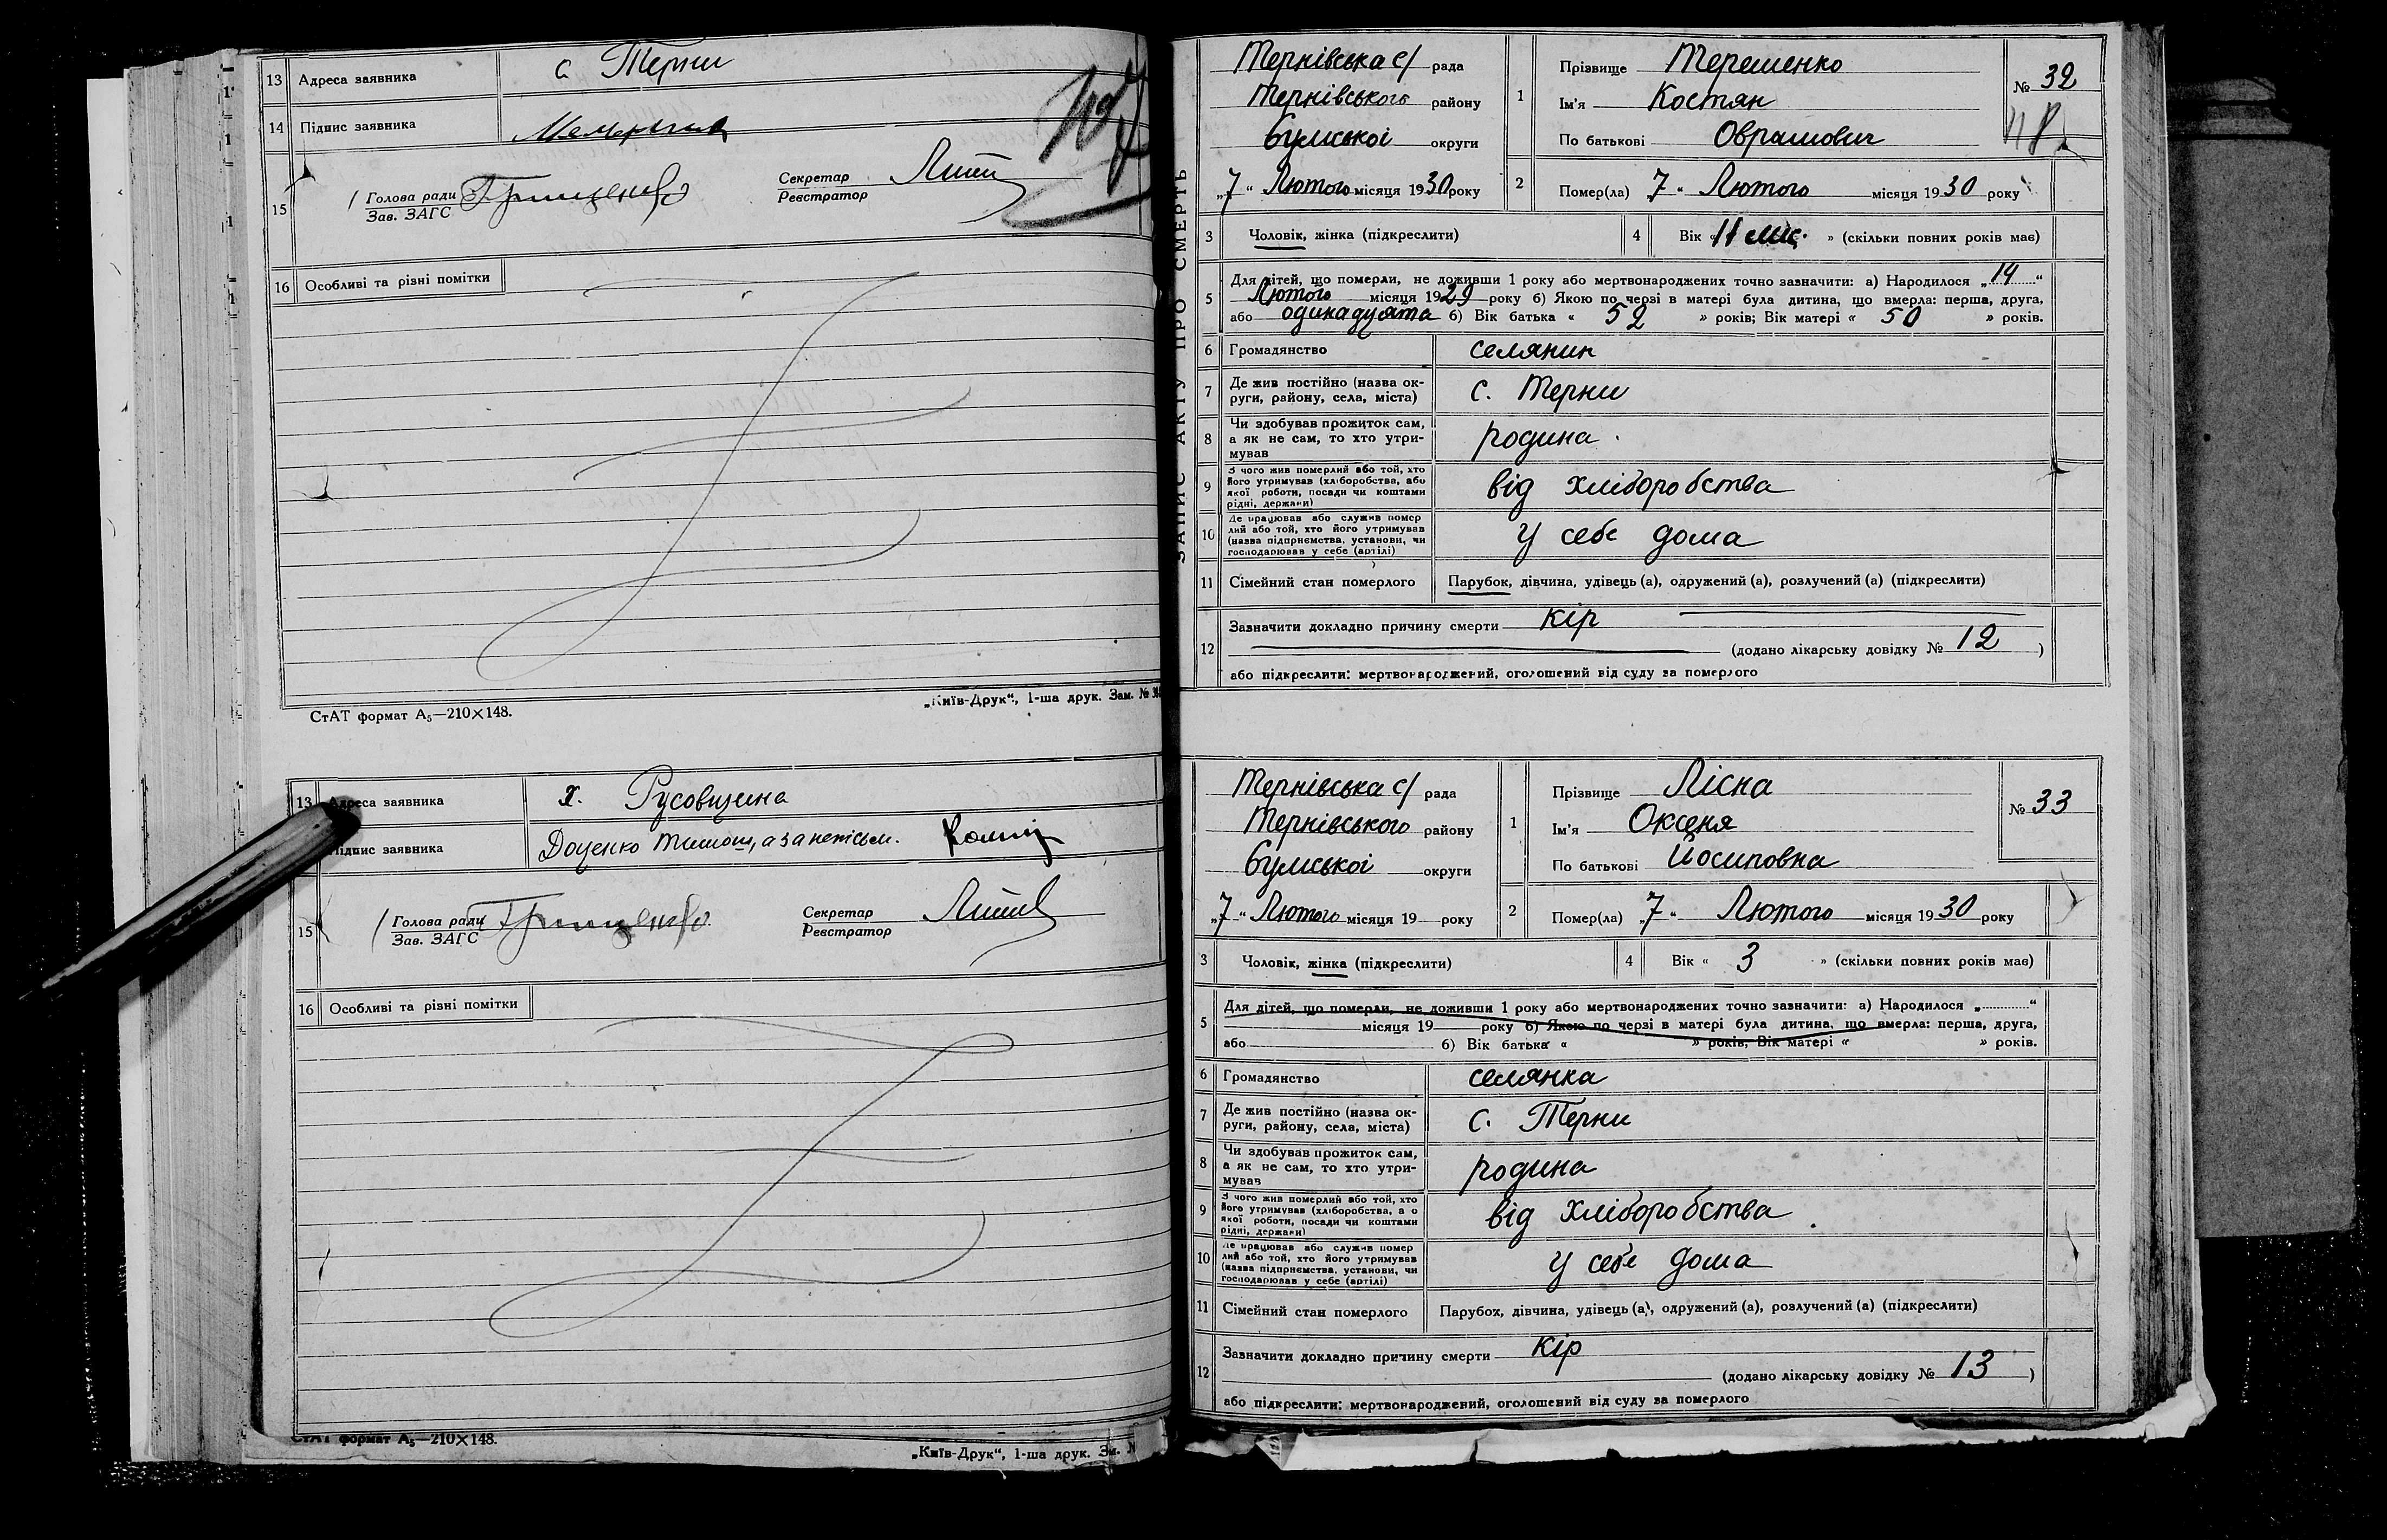 13 Адреса заявника с Терни
14 Підпис заявника
15 Голова ради Грищенко Секретар
Зав. ЗАГС Реєстратор
16 Особливі та різні помітки
СтАТ формат А₅—210×148.
„Київ-Друк“, 1-ша друк. Зам. №
13 Адреса заявника х. Русовщина
Підпис заявника Доценко Тимош, а за неписьм.
15 Голова ради Грищенко Секретар
Зав. ЗАГС Реєстратор
16 Особливі та різні помітки
СтАТ формат А₅—210×148.
„Київ-Друк“, 1-ша друк.
ЗАПИС АКТУ ПРО СМЕРТЬ
Тернівська с/ рада
Тернівського району
Сумської округи
„7“ Лютого місяця 1930 року
1 Прізвище Терешенко
Ім'я Костян
По батькові Оврамович
№ 32
2 Помер(ла) 7 “ Лютого місяця 1930 року
3 Чоловік, жінка (підкреслити)
4 Вік « 11 міс. » (скільки повних років має)
5 Для дітей, що померли, не доживши 1 року або мертвонароджених точно зазначити: а) Народилося „14“
Лютого місяця 1929 року б) Якою по черзі в матері була дитина, що вмерла: перша, друга,
або одинадцята б) Вік батька « 52 » років; Вік матері « 50 » років.
6 Громадянство селянин
7 Де жив постійно (назва ок-
руги, району, села, міста) с. Терни
8 Чи здобував прожиток сам,
а як не сам, то хто утри-
мував родина
9 З чого жив померлий або той, хто
його утримував (хліборобства, або
якої роботи, посади чи коштами
рідні, держави) від хліборобства
10 Де працював або служив помер
лий або той, хто його утримував
(назва підприємства, установи, чи
господарював у себе (артілі) у себе дома
11 Сімейний стан померлого Парубок, дівчина, удівець (а), одружений (а), розлучений (а) (підкреслити)
12 Зазначити докладно причину смерти кір
(додано лікарську довідку № 12 )
або підкреслити: мертвонароджений, оголошений від суду за померлого
Тернівська с/ рада
Тернівського району
Сумської округи
„7“ Лютого місяця 19 року
1 Прізвище Лісна
Ім'я Оксеня
По батькові Йосиповна
№ 33
2 Помер(ла) „7“ Лютого місяця 1930 року
3 Чоловік, жінка (підкреслити)
4 Вік « 3 » (скільки повних років має)
5 Для дітей, що померли, не доживши 1 року або мертвонароджених точно зазначити: а) Народилося „ “
місяця 19 року б) Якою по черзі в матері була дитина, що вмерла: перша, друга,
або б) Вік батька « » років; Вік матері « » років.
6 Громадянство селянка
7 Де жив постійно (назва ок-
руги, району, села, міста) с. Терни
8 Чи здобував прожиток сам,
а як не сам, то хто утри-
мував родина
9 З чого жив померлий або той, хто
його утримував (хліборобства, або
якої роботи, посади чи коштами
рідні, держави) від хліборобства
10 Де працював або служив помер
лий або той, хто його утримував
(назва підприємства, установи, чи
господарював у себе (артілі) у себе дома
11 Сімейний стан померлого Парубох, дівчина, удівець (а), одружений (а), розлучений (а) (підкреслити)
12 Зазначити докладно причину смерти кір
(додано лікарську довідку № 13 )
або підкреслити: мертвонароджений, оголошений від суду за померлого